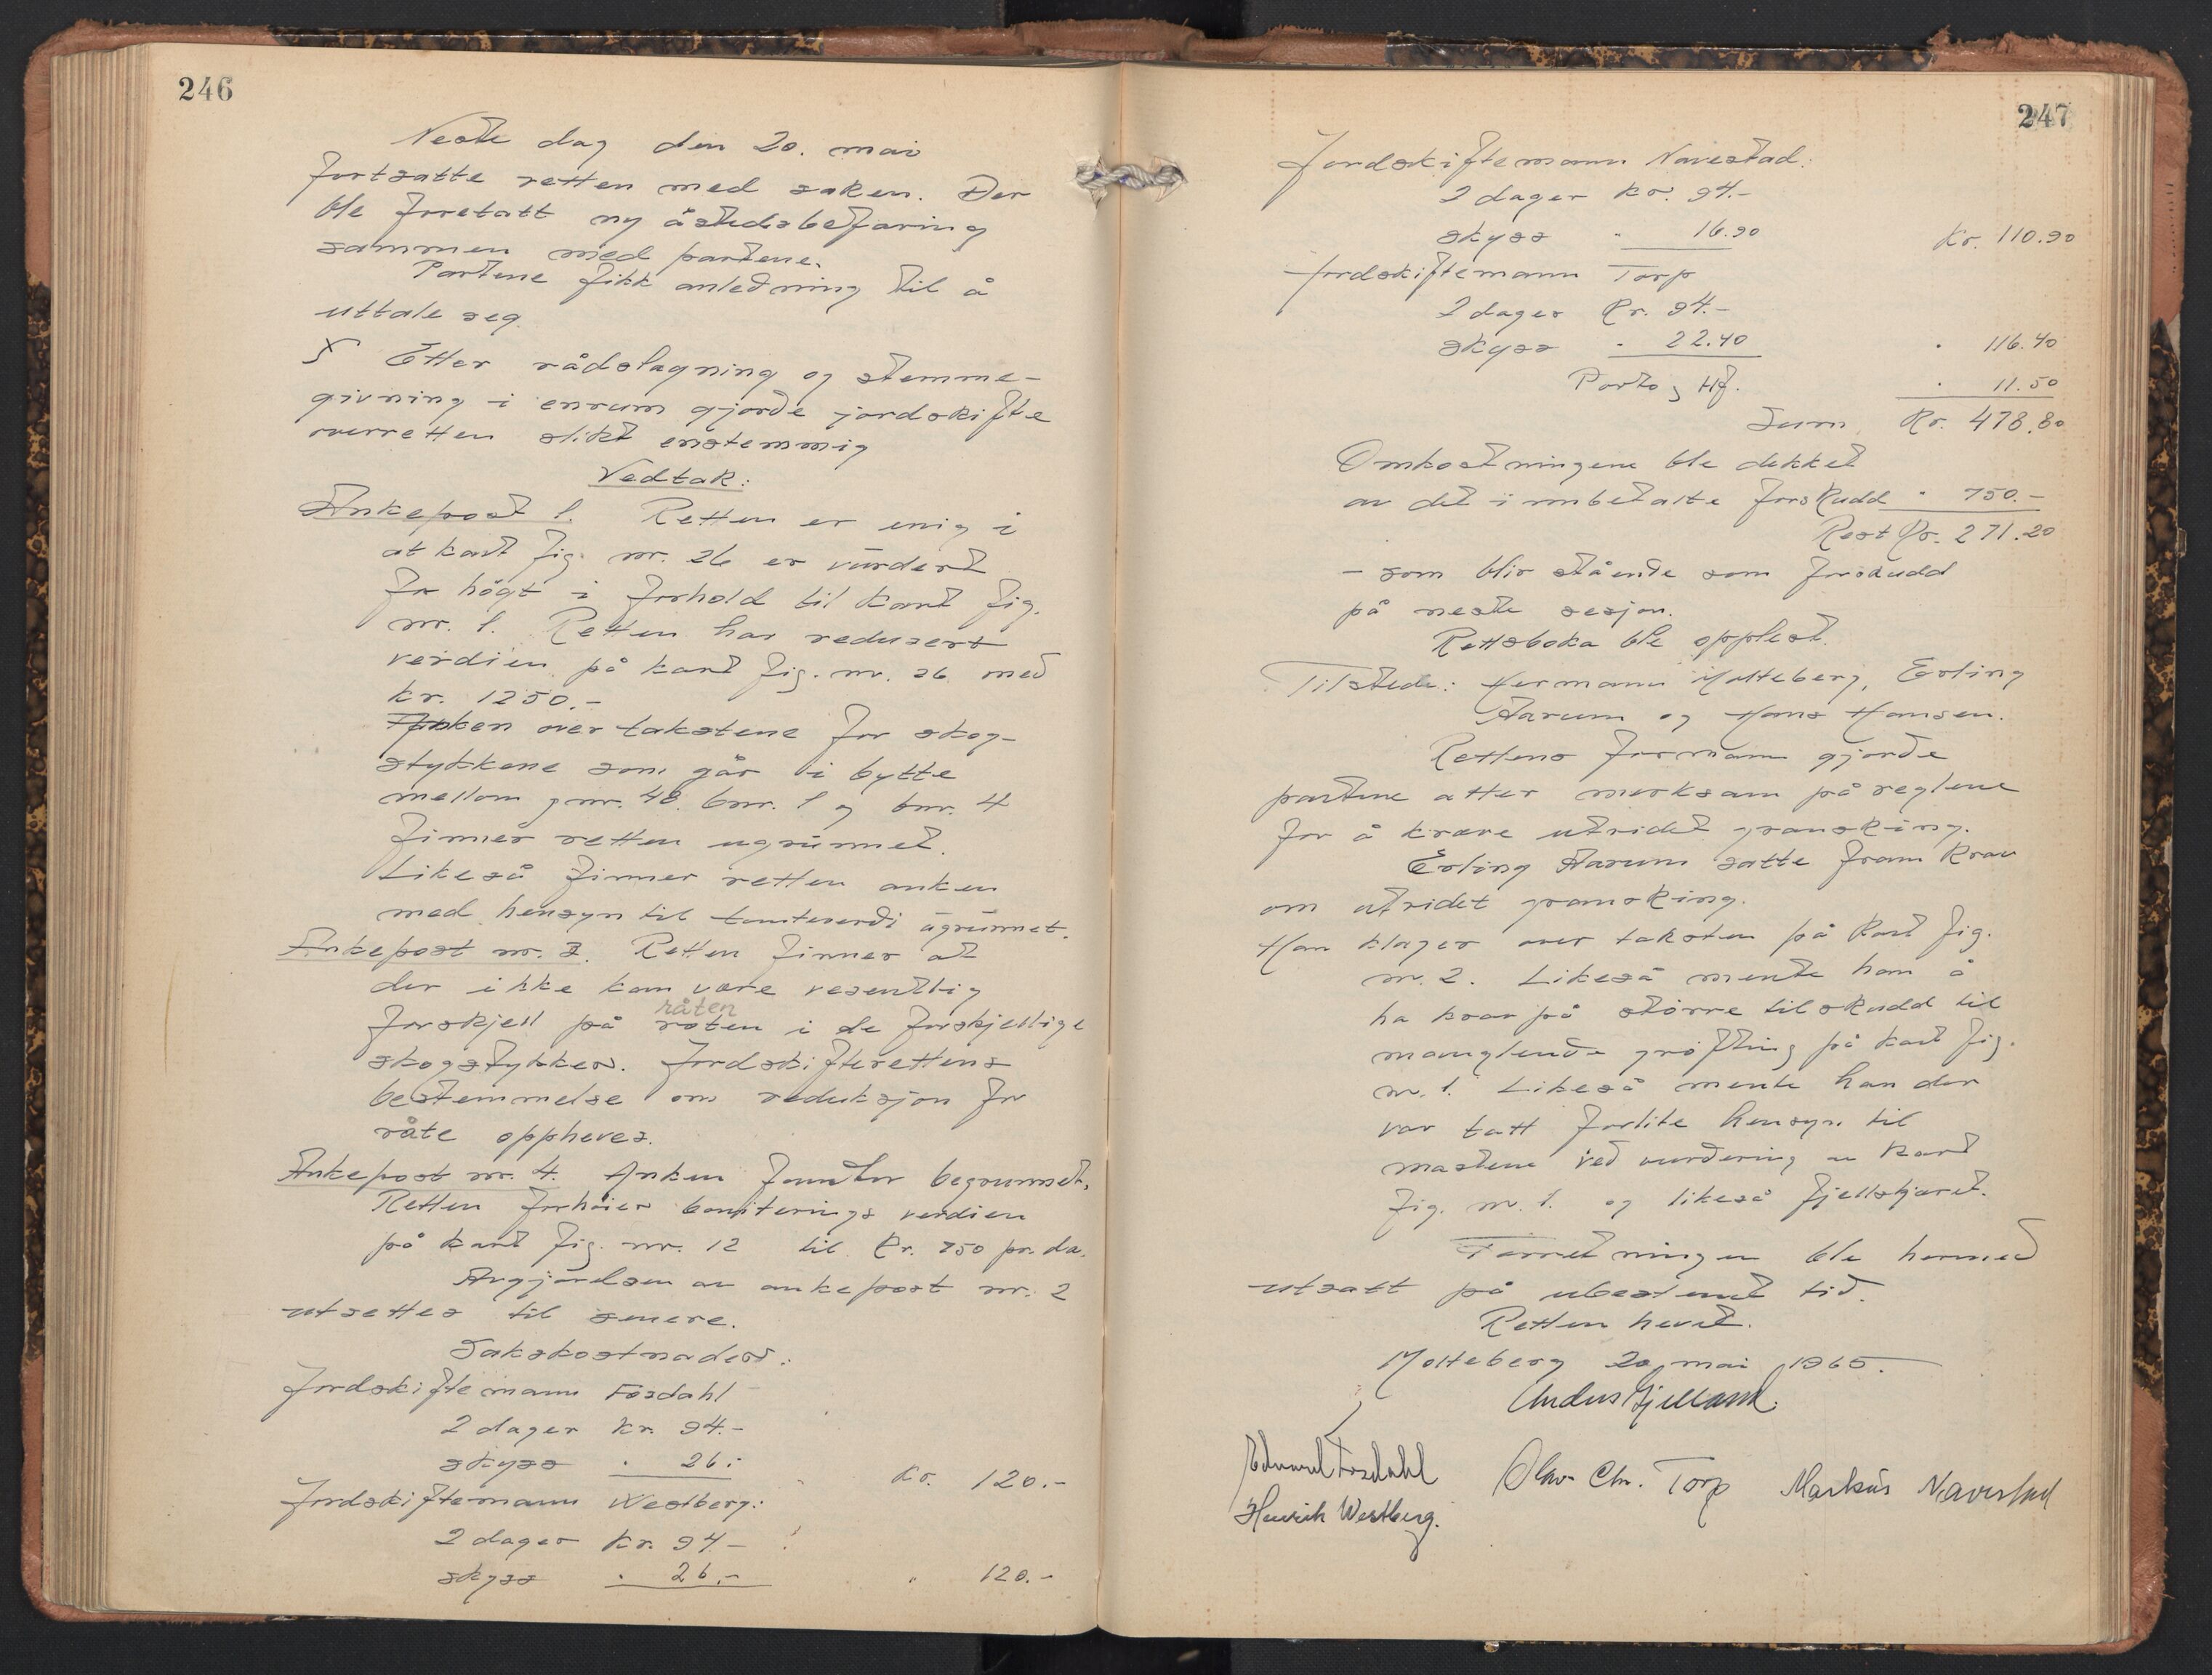 246
Neste dag den 20. mai
fortsatte retten med saken. Der
ble foretatt ny åstedsbefaring
sammen med partene.
Partene fikk anledning til å
uttale seg.
Etter rådslagning og stemme-
givning i enrum gjorde jordskifte
overretten slikt enstemmig
Vedtak:
Ankepost 1. Retten er enig i
at kart fig. nr. 26 er vurdert
for högt i forhold til kart fig.
nr. 1. Retten har redusert
verdien på kart fig. nr. 26 med
kr. 1250.-
Anken over takstene for skog-
stykkene som går i bytte
mellom gnr. 48 bnr. 1 og bnr. 4
finner retten ugrunnet.
Likeså finner retten anken
med hensyn til tomteverdi ugrunnet.
Ankepost nr. 3. Retten finner at
der ikke kan være vesentlig
råten
forskjell på roten i de forskjellige
skogstykker. Jordskifterettens
bestemmelse om reduksjon for
råte oppheves.
Ankepost nr. 4. Anken begrunnet.
Retten forhöier boniterings verdien
på kart fig. nr. 12 til kr. 750 pr. da.
Avgjörelsen av ankepost nr. 2
utsettes til senere.
Sakskostnader:
Jordskiftemann Fosdahl
2 dager kr. 94.-
skyss " 26.-
Kr. 120.-
Jordskiftemann Westberg:
2 dager kr. 94.-
skyss " 26.-
" 120.-
247
Jordskiftemann Navestad:
2 dager kr. 94.-
skyss " 16.90
Kr. 110.90
Jordskiftemann Torp
2 dager Kr. 94.-
skyss " 22.40
" 116.40
Porto, tlf. " 11.50
Sum Kr. 478.80
Omkostningene ble dekket
av det innbetalte forskudd " 750.-
Rest Kr. 271.20
- som blir stående som forskudd
på neste sesjon.
Rettsboka ble opplest.
Tilstede: Hermann Molteberg, Erling
Aarum og Hans Hansen.
Rettens formann gjorde
partene atter merksam på reglene
for å kreve utvidet gransking.
Erling Aarum satte fram krav
om utvidet gransking.
Han klager over taksten på kart fig.
nr. 2. Likeså mente han å
ha krav på större tilskudd til
manglende gröfting på kart fig.
nr. 1. Likeså mente han der
var tatt forlite hensyn til
mastene ved vurdering av kart
fig. nr. 1. og likeså fjellskjæret.
Forretningen ble hermed
utsatt på ubestemt tid.
Retten hevet.
Molteberg 20 mai 1965.
Anders Gjelland.
Edvard Fosdahl
Olav Chr. Torp
Markus Navestad
Henrik Westberg.